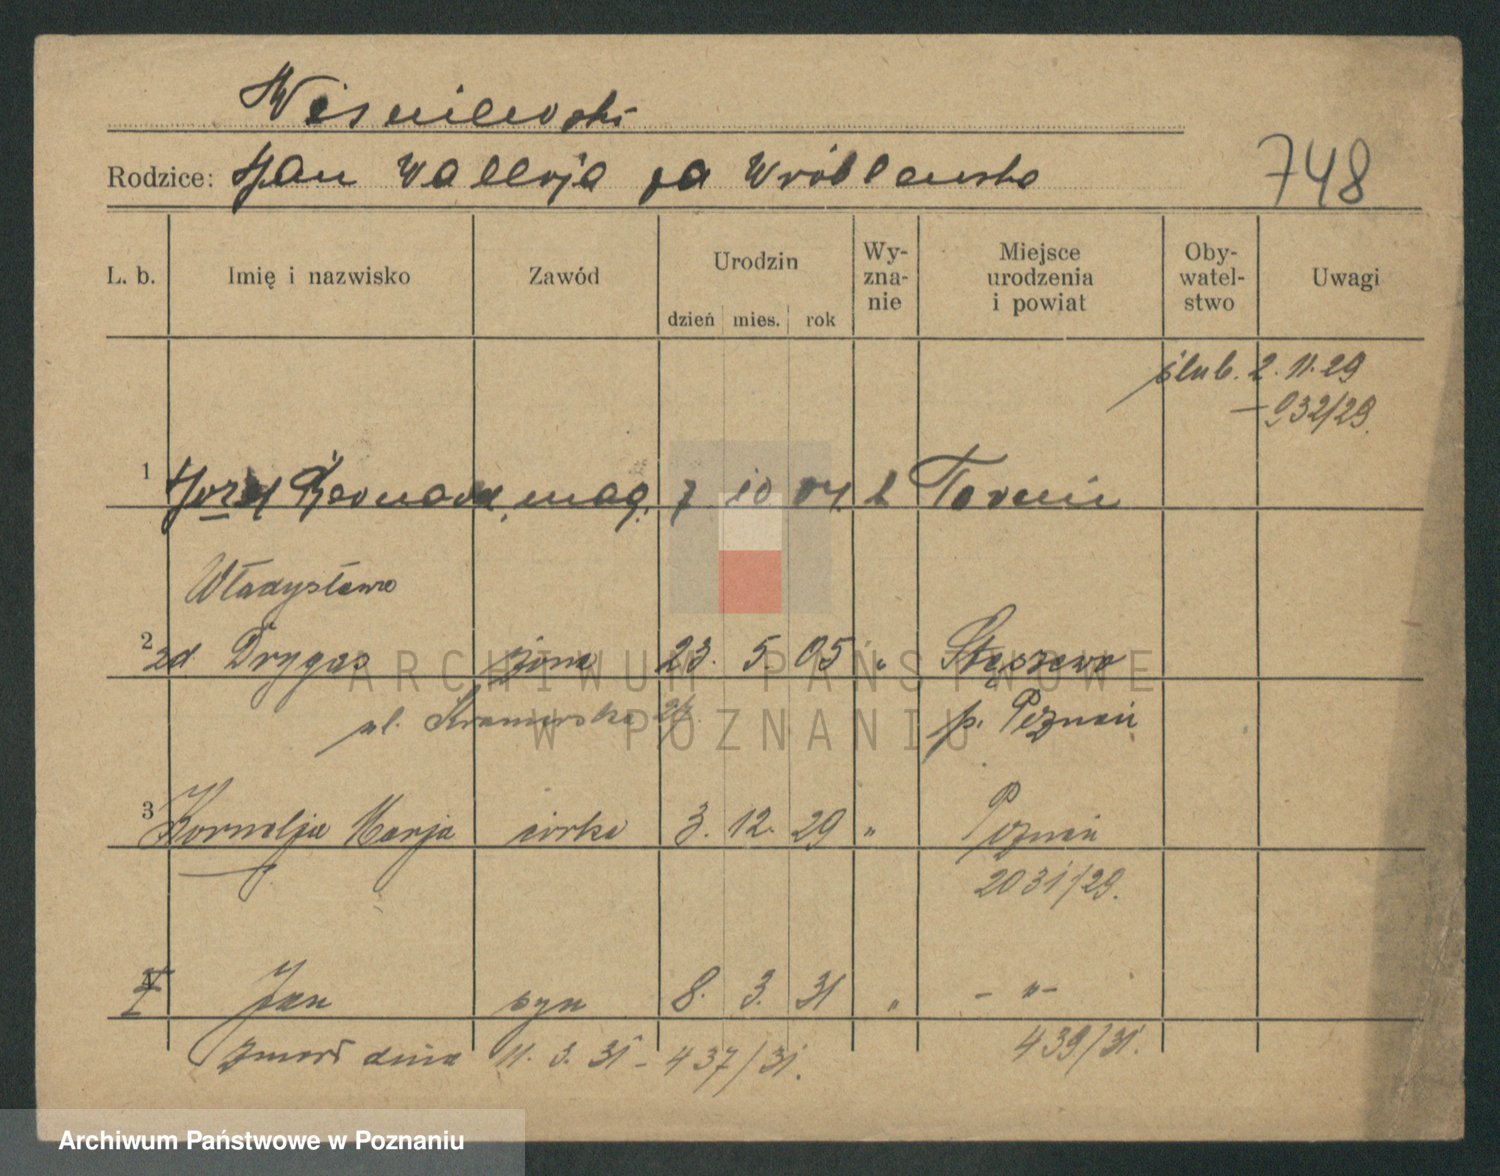 Wiśniewski
Rodzice: Jan Wallerja za Wróblewska
748
L. b. Imię i nazwisko Zawód Urodzin dzień mies. rok Wy-zna-nie Miejsce urodzenia i powiat Oby-watel-stwo Uwagi
ślub. 2.11.29
–932/29.
1 Józef Bernard, mag. 7 10 04. k Toruń
Władysława
2 zd Drygas żona 23. 5. 05 „ Stęszewo
ul. Kramarska p. Poznań
3 Kornelja Marja córka 3. 12. 29 „ Poznań
2031/29.
4 Jan syn 8. 3. 31 „ – „ –
439/31.
zmarł dnia 11. 3. 31 – 437/31.
ARCHIWUM PAŃSTWOWE
W POZNANIU
Archiwum Państwowe w Poznaniu